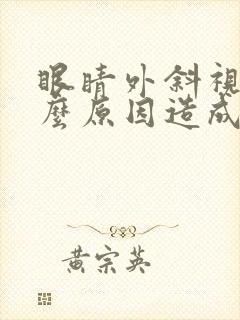 眼睛外斜視
麼原因造成
黃宗英